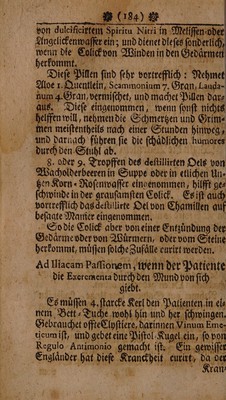 (184)
von dulcificirtem Spiritu Nitri in Melissen-oder
Angelickenwasser ein; und dienet dieses sonderlich,
wenn die Colick von Winden in den Gedärmen
herkommt.
Diese Pillen sind sehr vortrefflich: Nehmet
Aloe 1. Quentlein, Scammonium 7. Gran, Lauda-
num 4. Gran, vermischet, und machet Pillen dar-
aus. Diese eingenommen, wenn sonst nichts
helffen will, nehmen die Schmertzen und Grim-
men meistentheils nach einer Stunden hinweg,
und darnach führen sie die schädlichen humores
durch den Stuhl ab.
8. oder 9. Tropffen des destillirten Oels von
Wacholderbeeren in Suppe oder in etlichen Un-
tzen Korn-Rosenwasser eingenommen, hilfft ge-
schwinde in der grausamsten Colick. Es ist auch
vortrefflich das destillirte Oel von Chamillen auf
besagte Manier eingenommen.
So die Colick aber von einer Entzündung der
Gedärme oder von Würmern, oder vom Steine
herkommt, müssen solche Zufälle curirt werden.
Ad Iliacam Passionem, wenn der Patiente
die Excrementa durch den Mund von sich
giebt.
Es müssen 4. starcke Kerl den Patienten in ei-
nem Bett-Tuche wohl hin und her schwingen.
Gebrauchet offte Clystiere, darinnen Vinum Eme-
ticum ist, und gebet eine Pistol-Kugel ein, so von
Regulo Antimonio gemacht ist. Ein gewisser
Engländer hat diese Kranckheit curirt, da der
Kran-